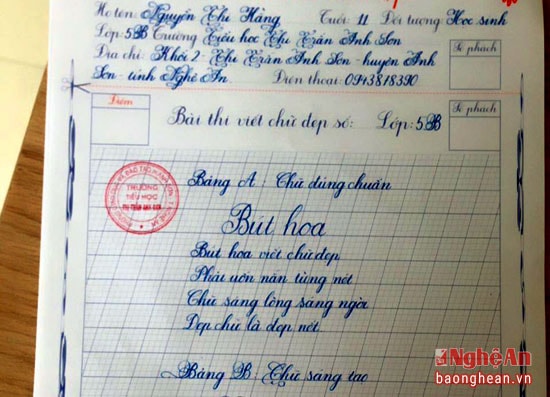 Họ tên: Nguyễn Thị Hằng Tuổi: 11 Đối tượng: Học sinh
Lớp: 5B Trường Tiểu học Thị Trấn Anh Sơn
Địa chỉ: Khối 2 - Thị Trấn Anh Sơn - huyện Anh
Sơn - tỉnh Nghệ An Điện thoại: 0943818390
Số phách
Điểm
Bài thi viết chữ đẹp số: Lớp: 5B
Số phách
TRƯỜNG
TIỂU HỌC
THỊ TRẤN ANH SƠN
Bảng A: Chữ đúng chuẩn
Bút hoa
Bút hoa viết chữ đẹp
Phải uốn nắn từng nét
Chữ sáng lòng sáng ngời
Đẹp chữ là đẹp nết.
Bảng B: Chữ sáng tạo
Nghệ An
baonghean.vn